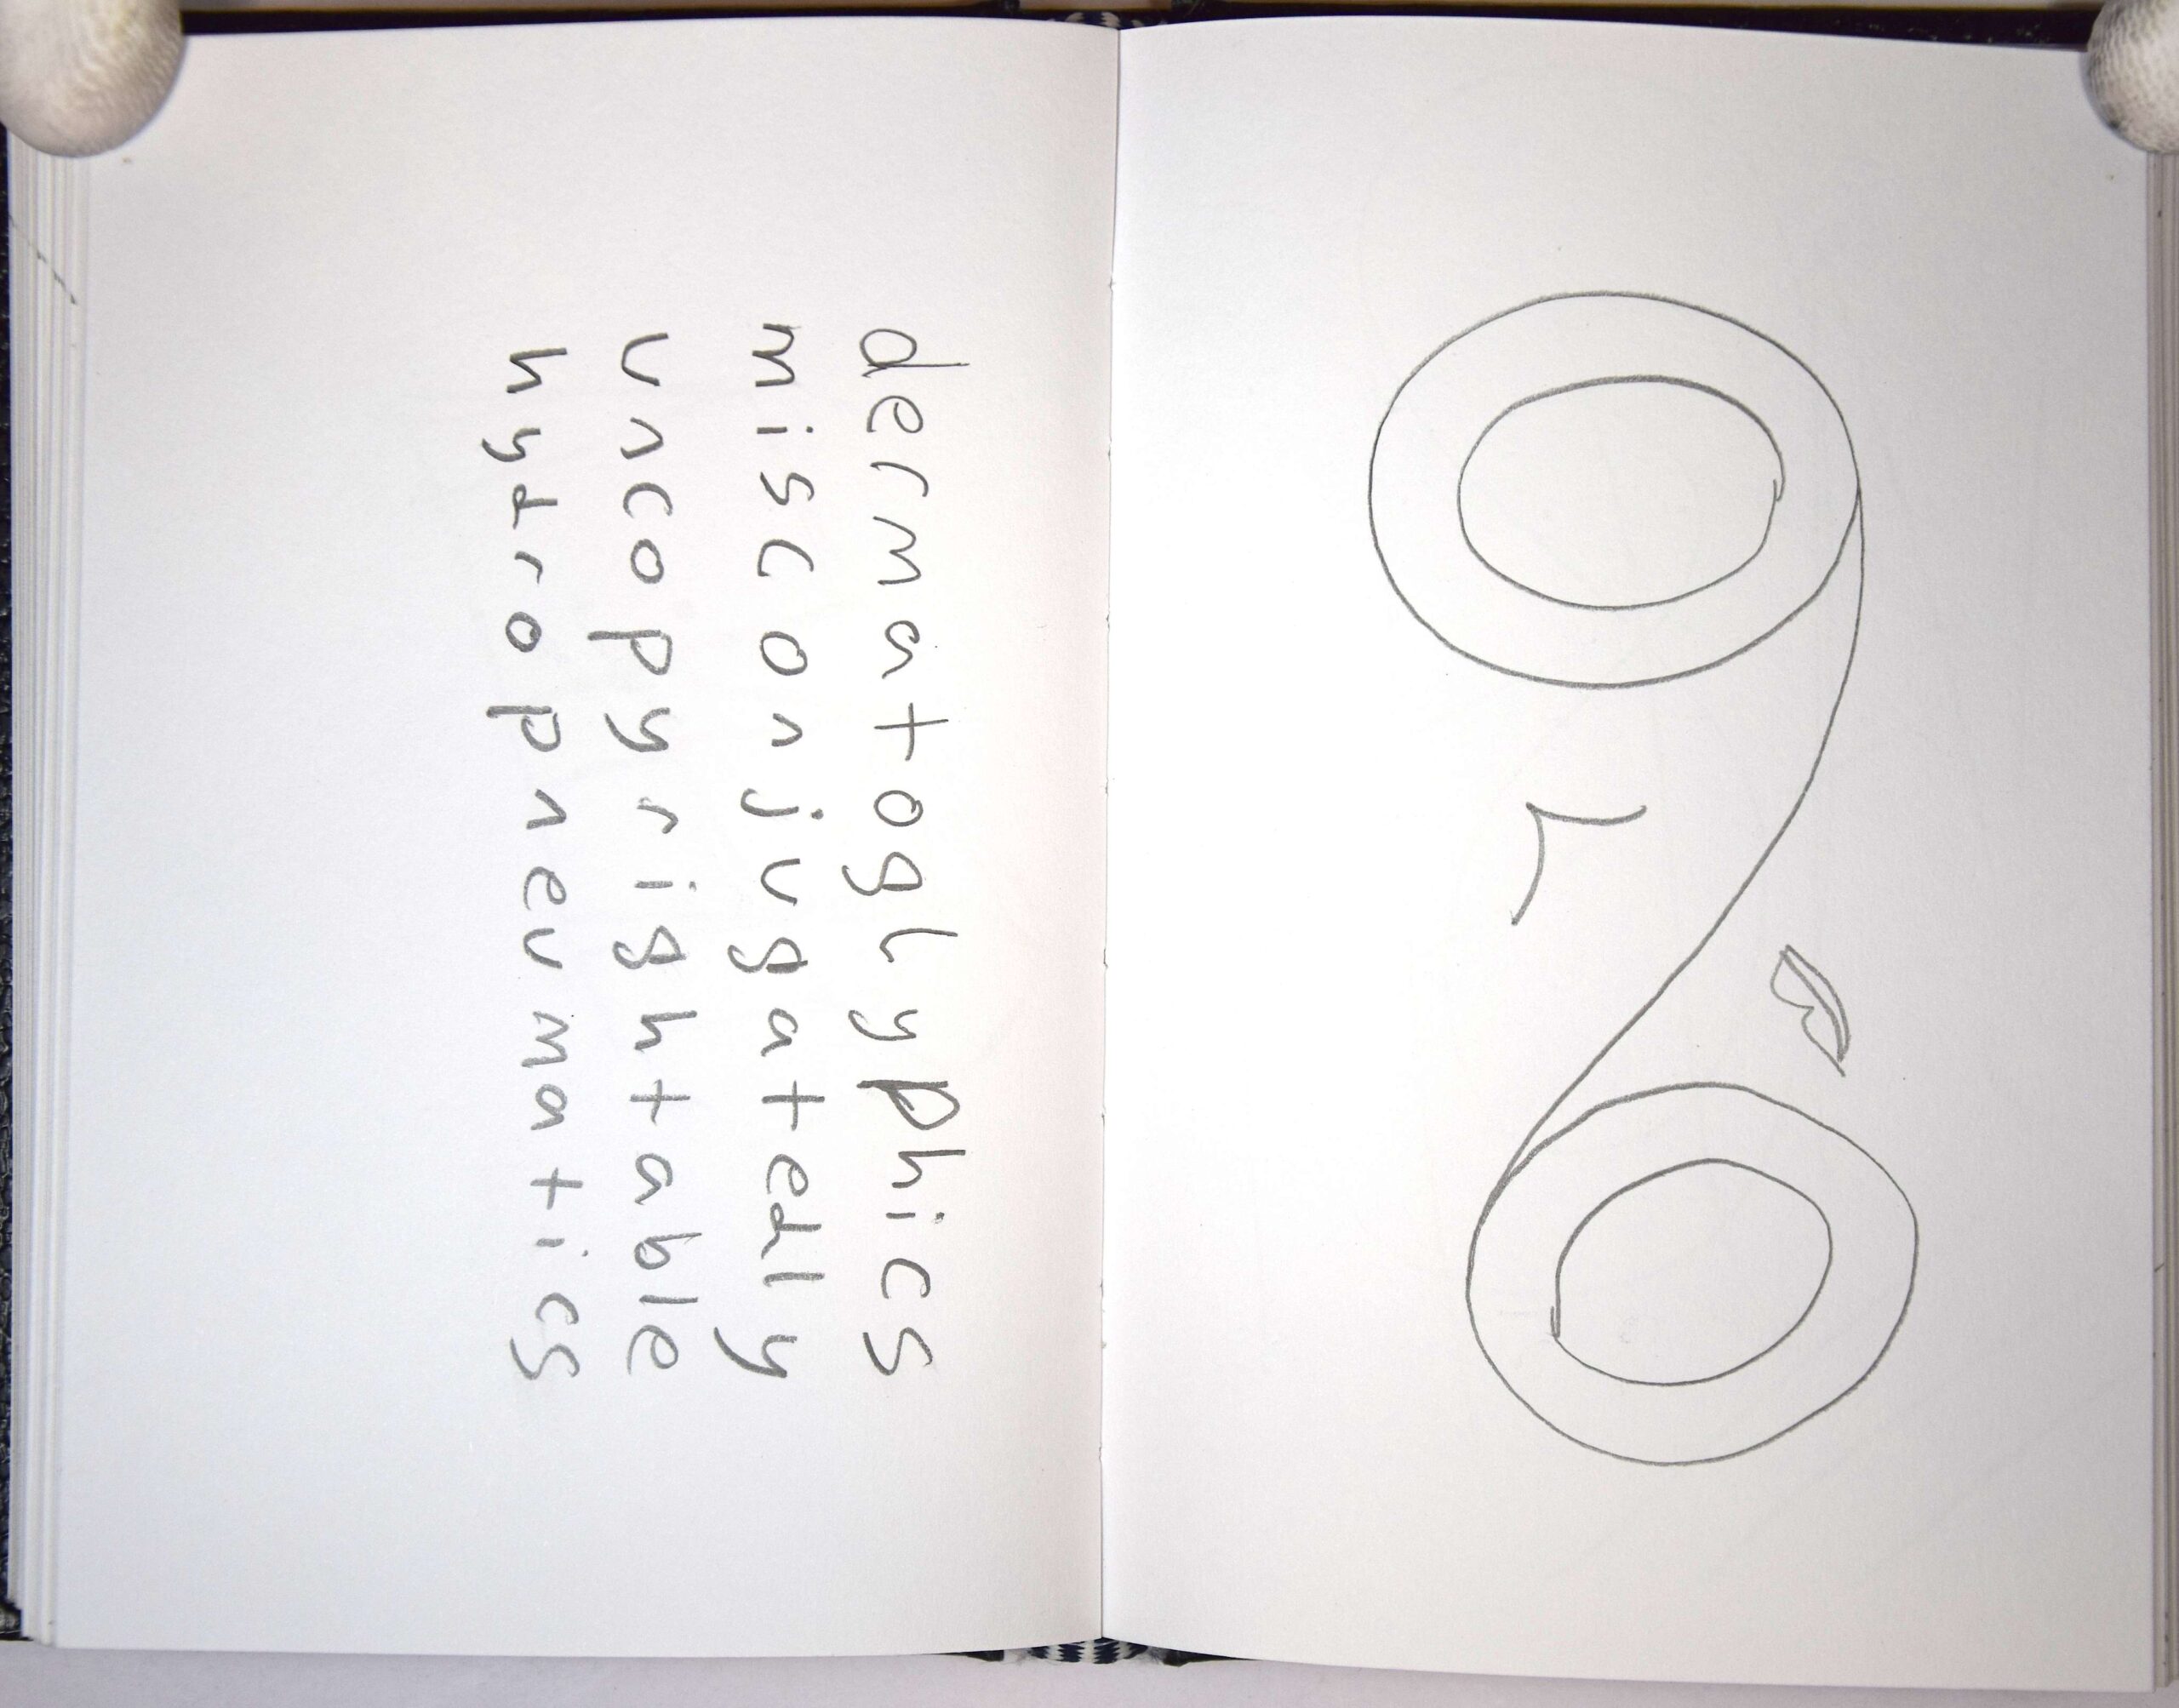 dermatoglyphics
misconjugatedly
uncopyrightable
hydropneumatics